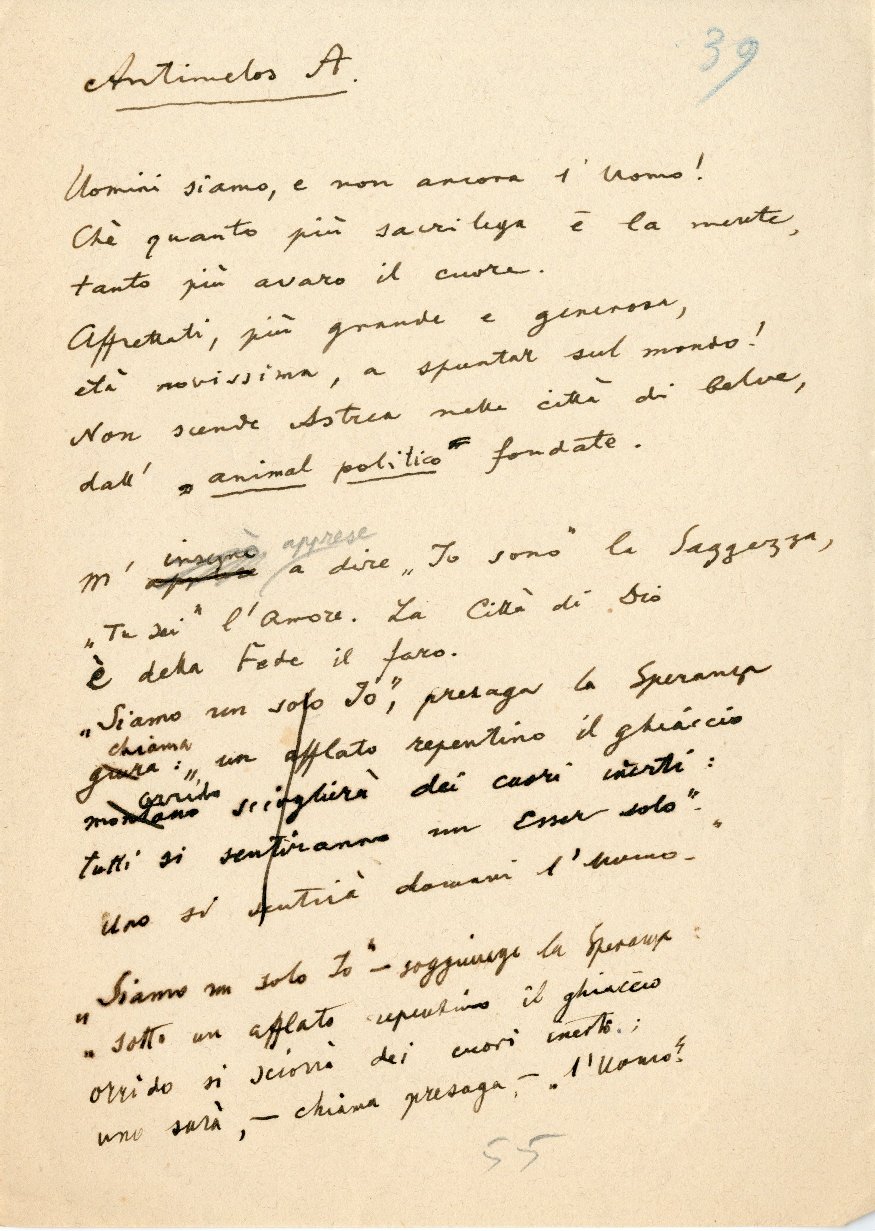 39
Antimelos A.
Uomini siamo, e non ancora l'Uomo!
Chè quanto più sacrilega è la mente,
tanto più avaro il cuore.
Affrettati, più grande e generosa,
età novissima, a spuntar sul mondo!
Non scende Astrea nelle città di belve,
dall' „animal politico" fondate.
insegnò apprese
M' apprese a dire „Io sono" la Saggezza,
„Tu sei" l'Amore. La Città di Dio
è della Fede il faro.
„Siamo un solo Io", presaga la Speranza
chiama
giura: „un afflato repentino il ghiaccio
orrido
montano scioglierà dei cuori inerti:
tutti si sentiranno un Esser solo".
Uno si sentirà domani l'Uomo."
„Siamo un solo Io" – soggiunge la Speranza:
„sotto un afflato repentino il ghiaccio
orrido si sciorrà dei cuori inerti:
uno sarà, – chiama presaga, – „l'Uomo!"
55